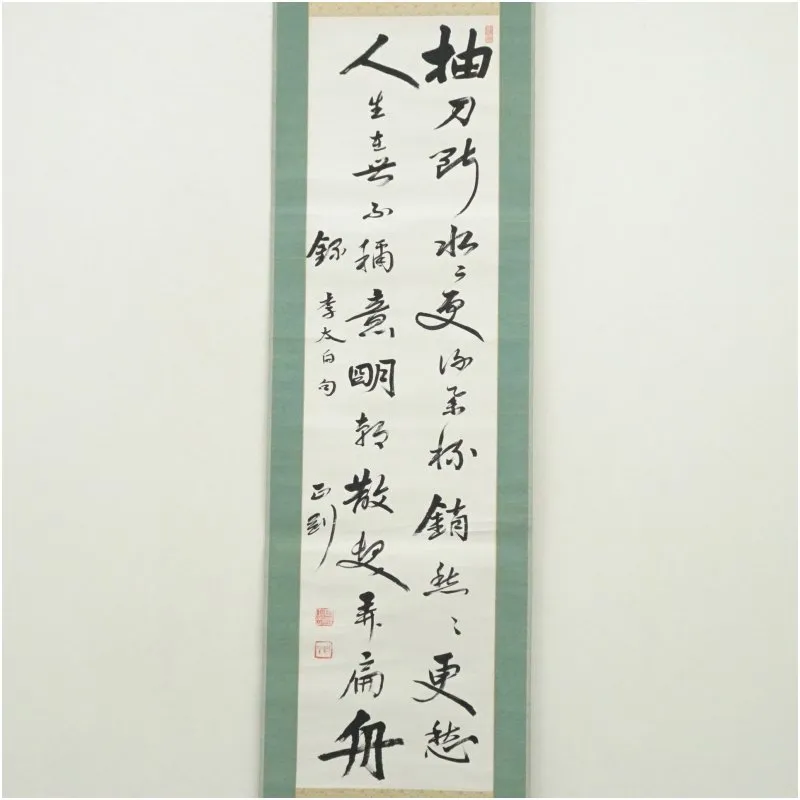 抽刀断水〻更流舉杯銷愁〻更愁
人生在世不稱意明朝散髮弄扁舟
錄李太白句
正剛